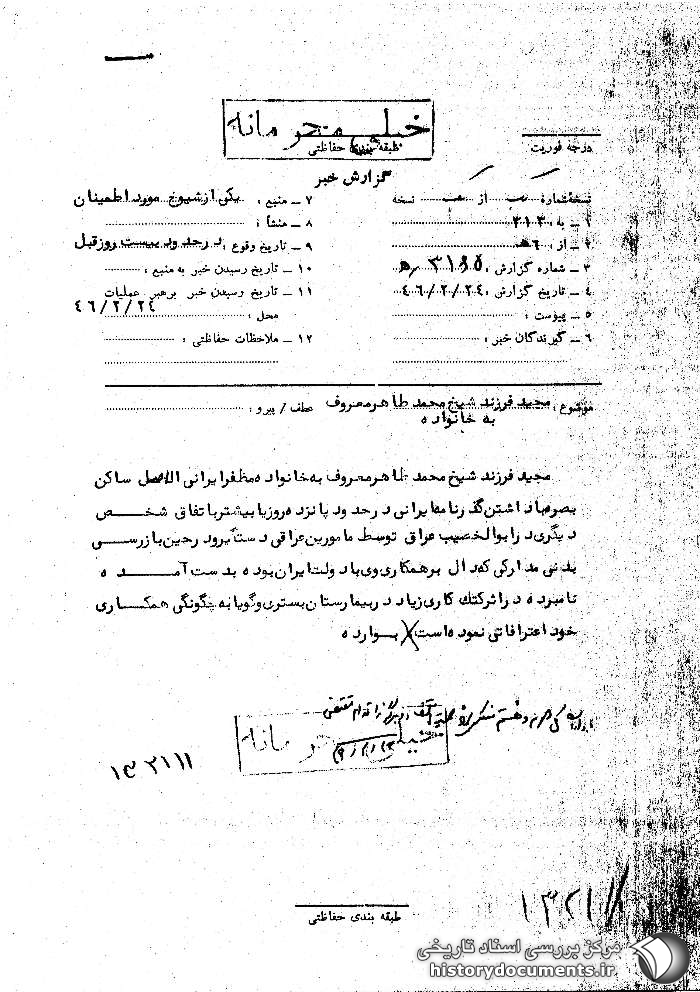 خیلی محرمانه
طبقه بندی حفاظتی
درجه فوریت
گزارش خبر
نسخه شماره از نسخه
۱ ـ به : ۳۱۲
۲ ـ از : ۶ ه
۳ ـ شماره گزارش : ۳۱۸۵ / ه
۴ ـ تاریخ گزارش : ۴۶/۲/۲۴
۵ ـ پیوست :
۶ ـ گیرندگان خبر :
۷ ـ منبع : یکی از شیوخ مورد اطمینان
۸ ـ منشأ :
۹ ـ تاریخ وقوع : در حدود بیست روز قبل
۱۰ ـ تاریخ رسیدن خبر به منبع :
۱۱ ـ تاریخ رسیدن خبر برهبر عملیات
محل : ۴۶/۲/۲۴
۱۲ ـ ملاحظات حفاظتی :
موضوع : مجید فرزند شیخ محمد طاهر معروف
به خانواده
عطف / پیرو :
مجید فرزند شیخ محمد طاهر معروف به خانواده مظفر ایرانی الاصل ساکن
بصره با داشتن گذرنامه ایرانی در حدود پانزده روز یا بیشتر با تفاق شخص
دیگری در ابوالخصیب عراق توسط مامورین عراقی دستگیر و در حین بازرسی
بدنی مدارکی که دال بر همکاری وی با دولت ایران بوده بدست آمده
نامبرده در اثر کتک کاری زیاد در بیمارستان بستری و گویا به چگونگی همکاری
خود اعترافاتی نموده است
خیلی محرمانه
۱۳۲۱۱۱
۱۳۲۱۱
طبقه بندی حفاظتی
مرکز بررسی اسناد تاریخی
historydocuments.ir